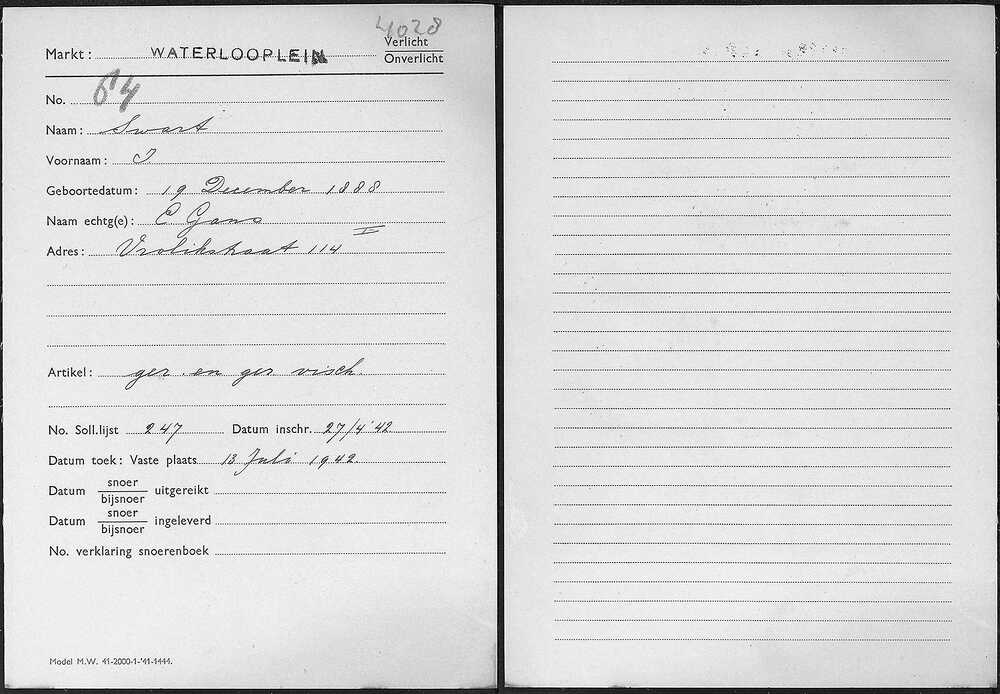 4028
Markt: WATERLOOPLEIN Verlicht
Onverlicht
No. 64
Naam: Swart
Voornaam: J
Geboortedatum: 19 December 1888
Naam echtg(e): C Gans
Adres: Vrolikstraat 114 II
Artikel: ger. en ger visch.
No. Soll.lijst 247 Datum inschr. 27/4 '42
Datum toek: Vaste plaats 13 Juli 1942.
Datum snoer uitgereikt
bijsnoer
Datum snoer ingeleverd
bijsnoer
No. verklaring snoerenboek
Model M.W. 41-2000-1-'41-1444.